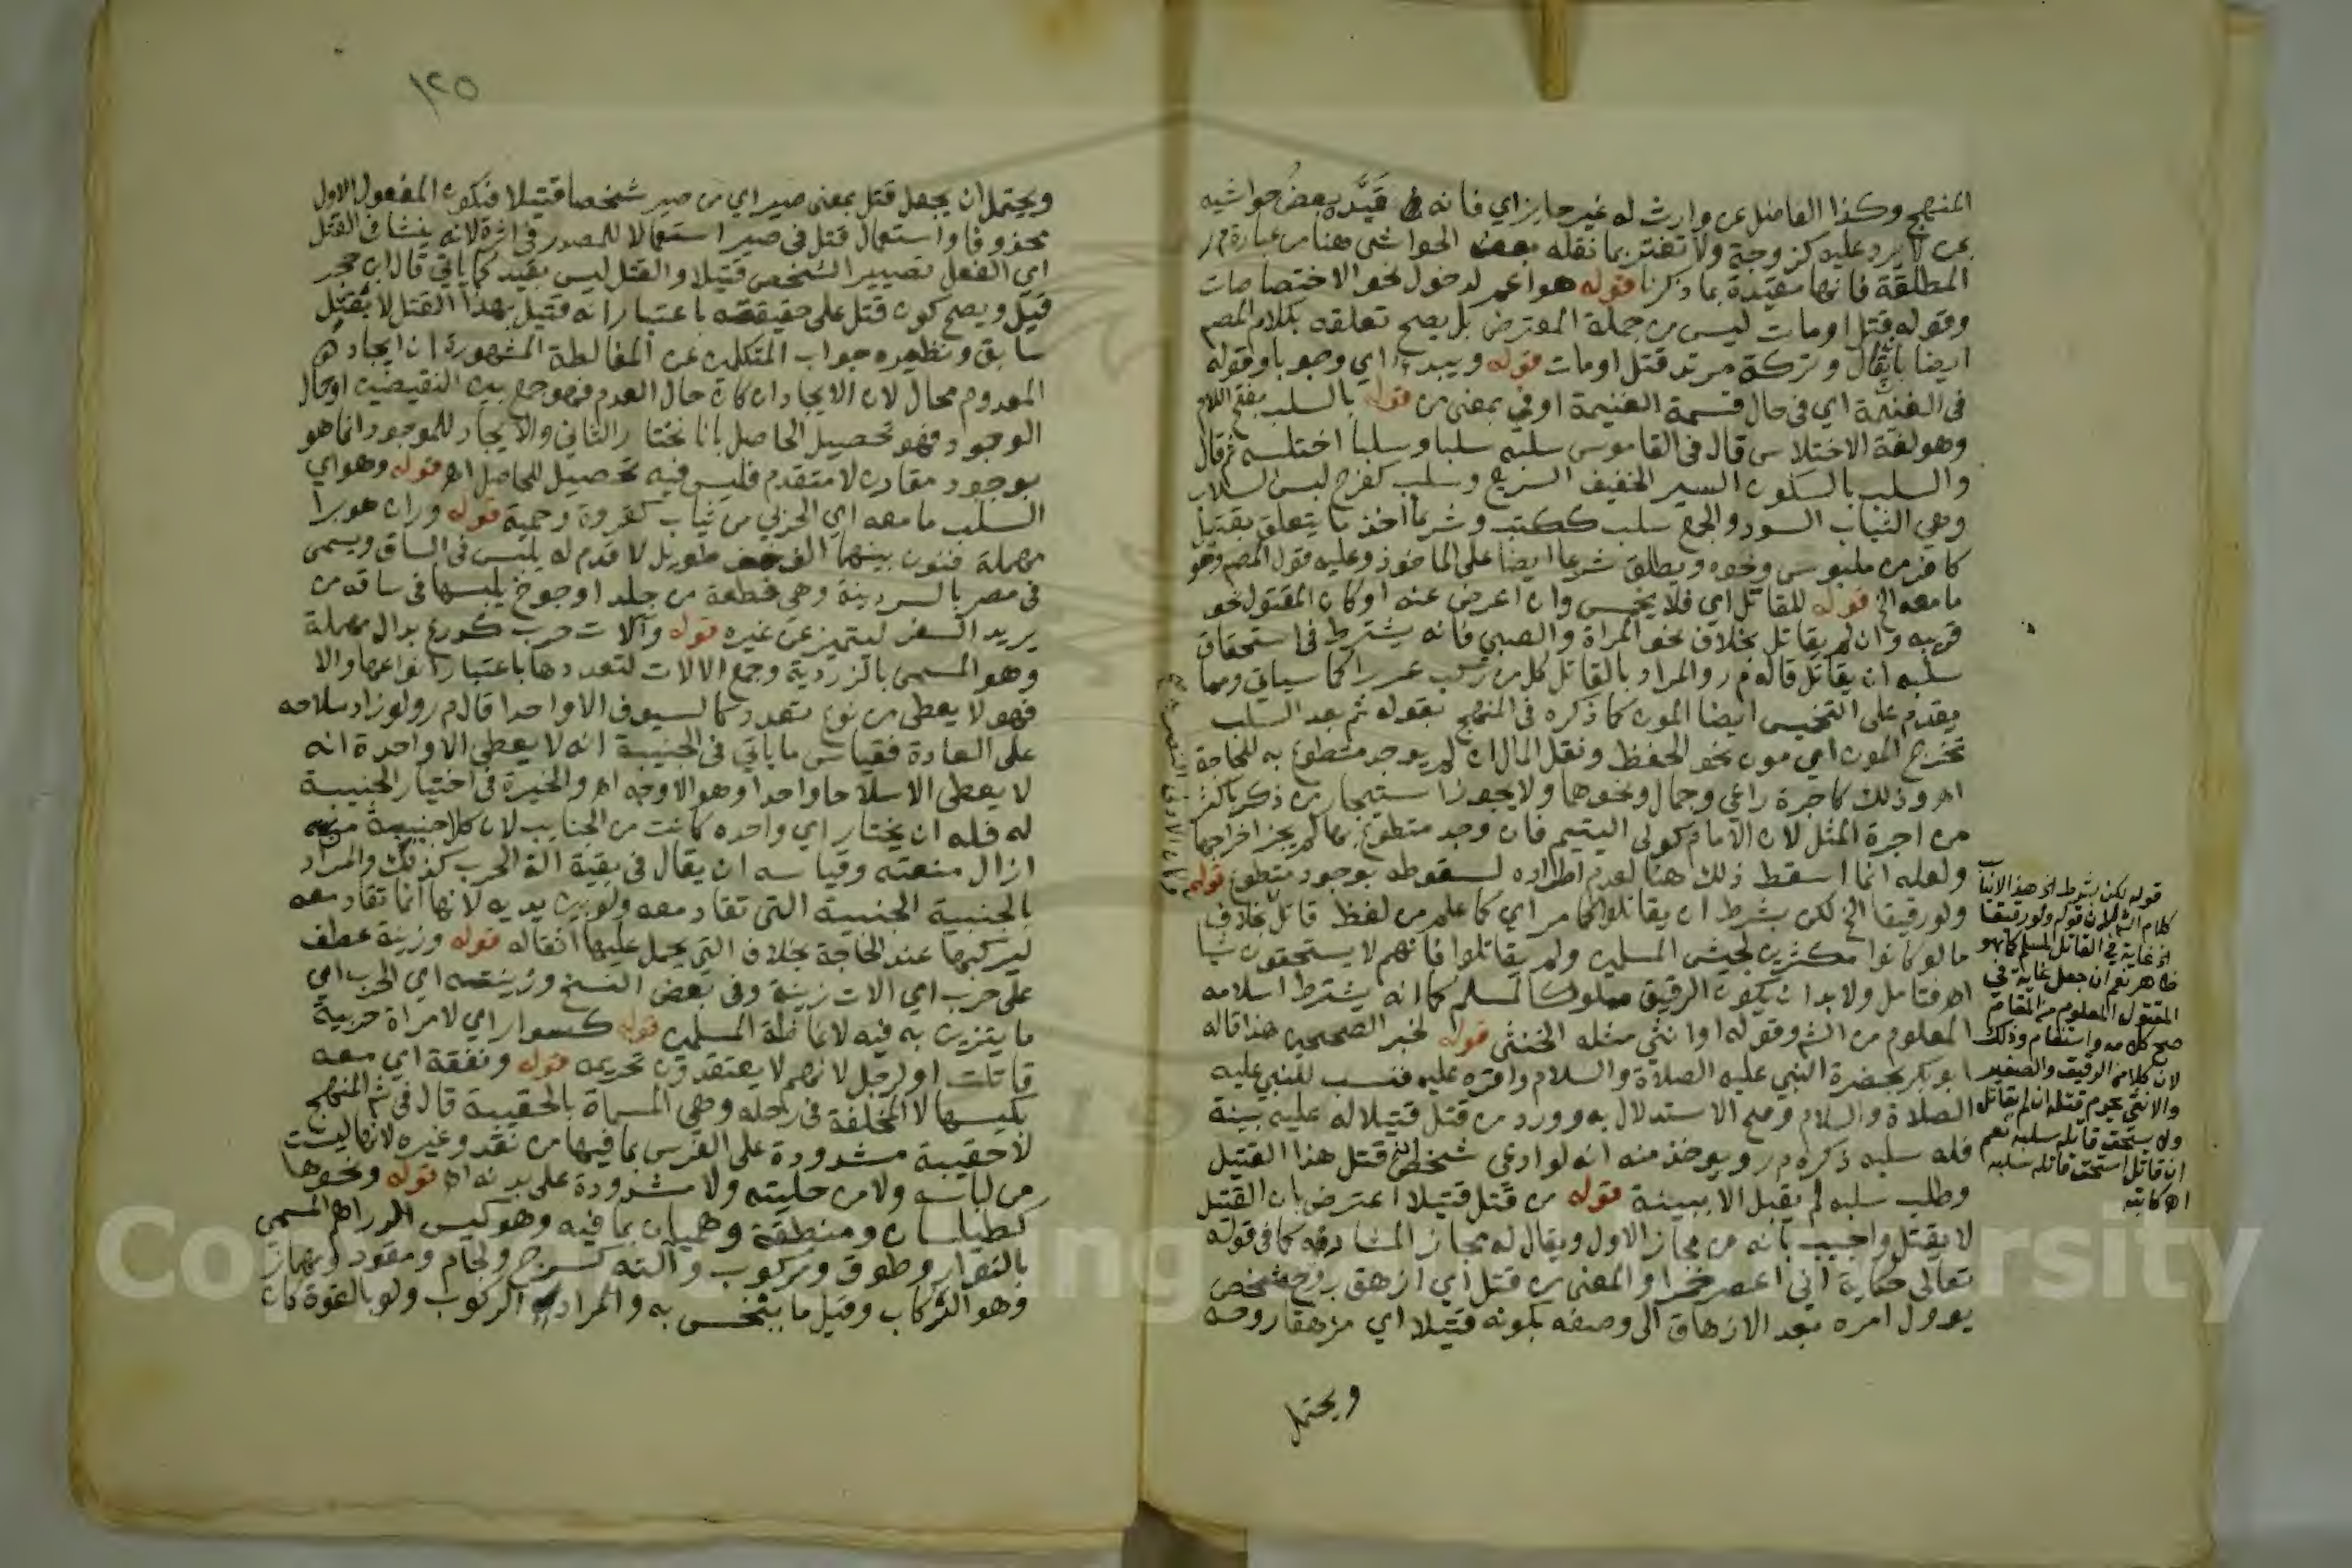 المنهج وكذا الفاضل عن وارث له غير حايز اي فانه قيَّده بعضُ حواشيه
بمن لا يرد عليه كزوجة ولا تغتر بما نقله بعض الحواشي هنا من عبارة م ر
المطلقة فانها مقيدة بما ذكرنا قوله هو اعم لدخول نحو الاختصاصات
وقوله قتل او مات ليس من جملة المعترض بل يصح تعلقه بكلام المصم
ايضا بان يقال وتركة مرتد قتل او مات قوله ويبدء اي وجوبا وقوله
في الغنيمة اي في حال قسمة الغنيمة او في بمعنى من قوله بالسلب بفتح اللام
وهو لغة الاختلاس قال في القاموس سلبه سلبا وسلبا اختلسه ثم قال
والسلب بالسكون السير الخفيف السريع وسلب كفرح لبس السلاب
وهي الثياب السود والجمع سلب ككتب وشرعا اخذ ما يتعلق بقتيل
كافر من ملبوس ونحوه ويطلق شرعا ايضا على الماخوذ وعليه قول المصم وهو
ما معه الخ قوله للقاتل اي فلا يخمس وان اعرض عنه او كان المقتول نحو
قريبه وان لم يقاتل بخلاف نحو المراة والصبي فانه يشترط في استحقاق
سلبه ان يقاتل قاله م ر والمراد بالقاتل كل من ركب غررا كما سياتي ومما
يقدم على التخميس ايضا المون كما ذكره في المنهج بقوله ثم بعد السلب
تخرج المون اي مون نحو الحفظ ونقل المال ان لم يوجد متطوع به للحاجة
اهـ وذلك كاجرة راعي وجمال ونحوهما ولا يجوز استيجار من ذكر باكثر
من اجرة المثل لان الامام كولي اليتيم فان وجد متطوع بها لم يجز اخراجها
ولعله انما اسقط ذلك هنا لعدم اطراده لسقوطه بوجود متطوع قوله
ولو رقيقا الخ لكن بشرط ان يقاتلوا كما مر اي كما علم من لفظ قاتل بخلاف
ما لو كانوا مكثرين لجيش المسلمين ولم يقاتلوا فانهم لا يستحقون شيا
اهـ فتامل ولا بد ان يكون الرقيق مملوكا لمسلم كما انه يشترط اسلامه
المعلوم من الشم وقوله او انثى مثله الخنثى قوله لخبر الصحيحين هذا قاله
ابو بكر بحضرة النبي عليه الصلاة والسلام واقره عليه فنسب للنبي عليه
الصلاة والسلام وصح الاستدلال به وورد من قتل قتيلا له عليه بينة
فله سلبه ذكره م ر ويوخذ منه انه لو ادعى شخص انه قتل هذا القتيل
وطلب سلبه لم يقبل الا ببينة قوله من قتل قتيلا اعترض بان القتيل
لا يقتل واجيب بانه من مجاز الاول ويقال له مجاز المشارفة كما في قوله
تعالى حكاية اني اعصر خمرا والمعنى من قتل اي ازهق روح شخص
يوول امره بعد الازهاق الى وصفه بكونه قتيلا اي مزهقا روحه
ويحتمل
قوله لكن بشرط الخ هذا لا يناسب
كلام الشم لان قوله ولو رقيقا
الخ غاية في القاتل المسلم كما هو
ظاهر نعم ان جعل غاية في
المقتول المعلوم من المقام
صح كلامه واستقام وذلك
لان كلا من الرقيق والصغير
والانثى يحرم قتله ان لم يقاتل
ولا يستحق قاتله سلبه نعم
ان قاتل استحق قاتله سلبه
اهـ كاتبه
١٢٥
ويحتمل ان يجعل قتل بمعنى صير اي من صير شخصا قتيلا فيكون المفعول الاول
محذوفا واستعمال قتل في صير استعمالا للمصدر في اثره لانه ينشا من القتل
اي الفعل تصيير الشخص قتيلا والقتل ليس بقيد كما ياتي قال ابن حجر
قيل ويصح كون قتل على حقيقته باعتبار انه قتيل بهذا القتل لا بقتل
سابق ونظيره جواب المتكلمين عن المغالطة المشهورة ان ايجاد
المعدوم محال لان الايجاد ان كان حال العدم فهو جمع بين النقيضين او حال
الوجود فهو تحصيل الحاصل بانا نختار الثاني والايجاد للموجود انما هو
بوجود مقارن لا متقدم فليس فيه تحصيل للحاصل اهـ قوله وهو اي
السلب ما معه اي الحربي من ثياب كفروة وجبة قوله وران هو برا
مهملة فنون بينهما الف خف طويل لا قدم له يلبس في الساق ويسمى
في مصر بالسردينة وهي قطعة من جلد او جوخ يلبسها في ساقه من
يريد السفر ليتميز عن غيره قوله وآلات حرب كدرع بدال مهملة
وهو المسمى بالزردية وجمع الالات لتعددها باعتبار انواعها والا
فهو لا يعطى من نوع متعدد كالسيوف الا واحدا قال م ر ولو زاد سلاحه
على العادة فقياس ما ياتي في الجنيبة انه لا يعطى الا واحدة انه
لا يعطى الا سلاحا واحدا وهو الاوجه اهـ والخيرة في اختيار الجنيبة
له فله ان يختار اي واحده كانت من الجنايب لان كلا جنيبة منعه
ازال منعته وقياسه ان يقال في بقية الة الحرب كذلك والمراد
بالجنيبة الجنيبة التي تقاد معه ولو بين يديه لانها انما تقاد معه
ليركبها عند الحاجة بخلاف التي يحمل عليها اثقاله قوله وزينة عطف
على حرب اي الات زينة وفي بعض النسخ وزينته اي الحرب اي
ما يتزين به فيه لاغاظة المسلمين قوله كسوار اي لامراة حربية
قاتلت او لرجل لانهم لا يعتقدون تحريمه قوله ونفقة اي معه
بكيسها لا المخلفة في رحله وهي المسماة بالحقيبة قال في شم المنهج
لا حقيبة مشدودة على الفرس بما فيها من نقد وغيره لانها ليست
من لباسه ولا من حليته ولا مشدودة على بدنه اهـ قوله ونحوها
كطيلسان ومنطقة وهميان بما فيه وهو كيس الدراهم المسمى
بالنوار وطوق ومركوب وآلته كسرج ولجام ومقود ومهماز
وهو الركاب وقيل ما ينخس به والمراد الركوب ولو بالقوة كان